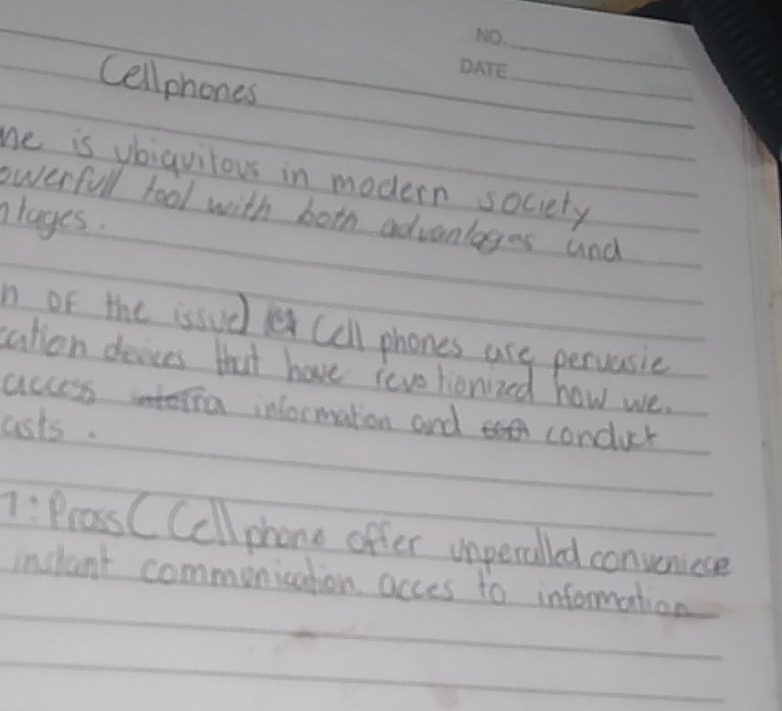 NO.
DATE
Cellphones
ne is ubiquitous in modern society
owerfull tool with both advantages and
ntages.
n of the issue) Cell phones are pervasie
cation devices that have revotionized how we
access information and conduct
asts.
1: Pross ( Cell phone offer unperalled conveniece
instant communication acces to information